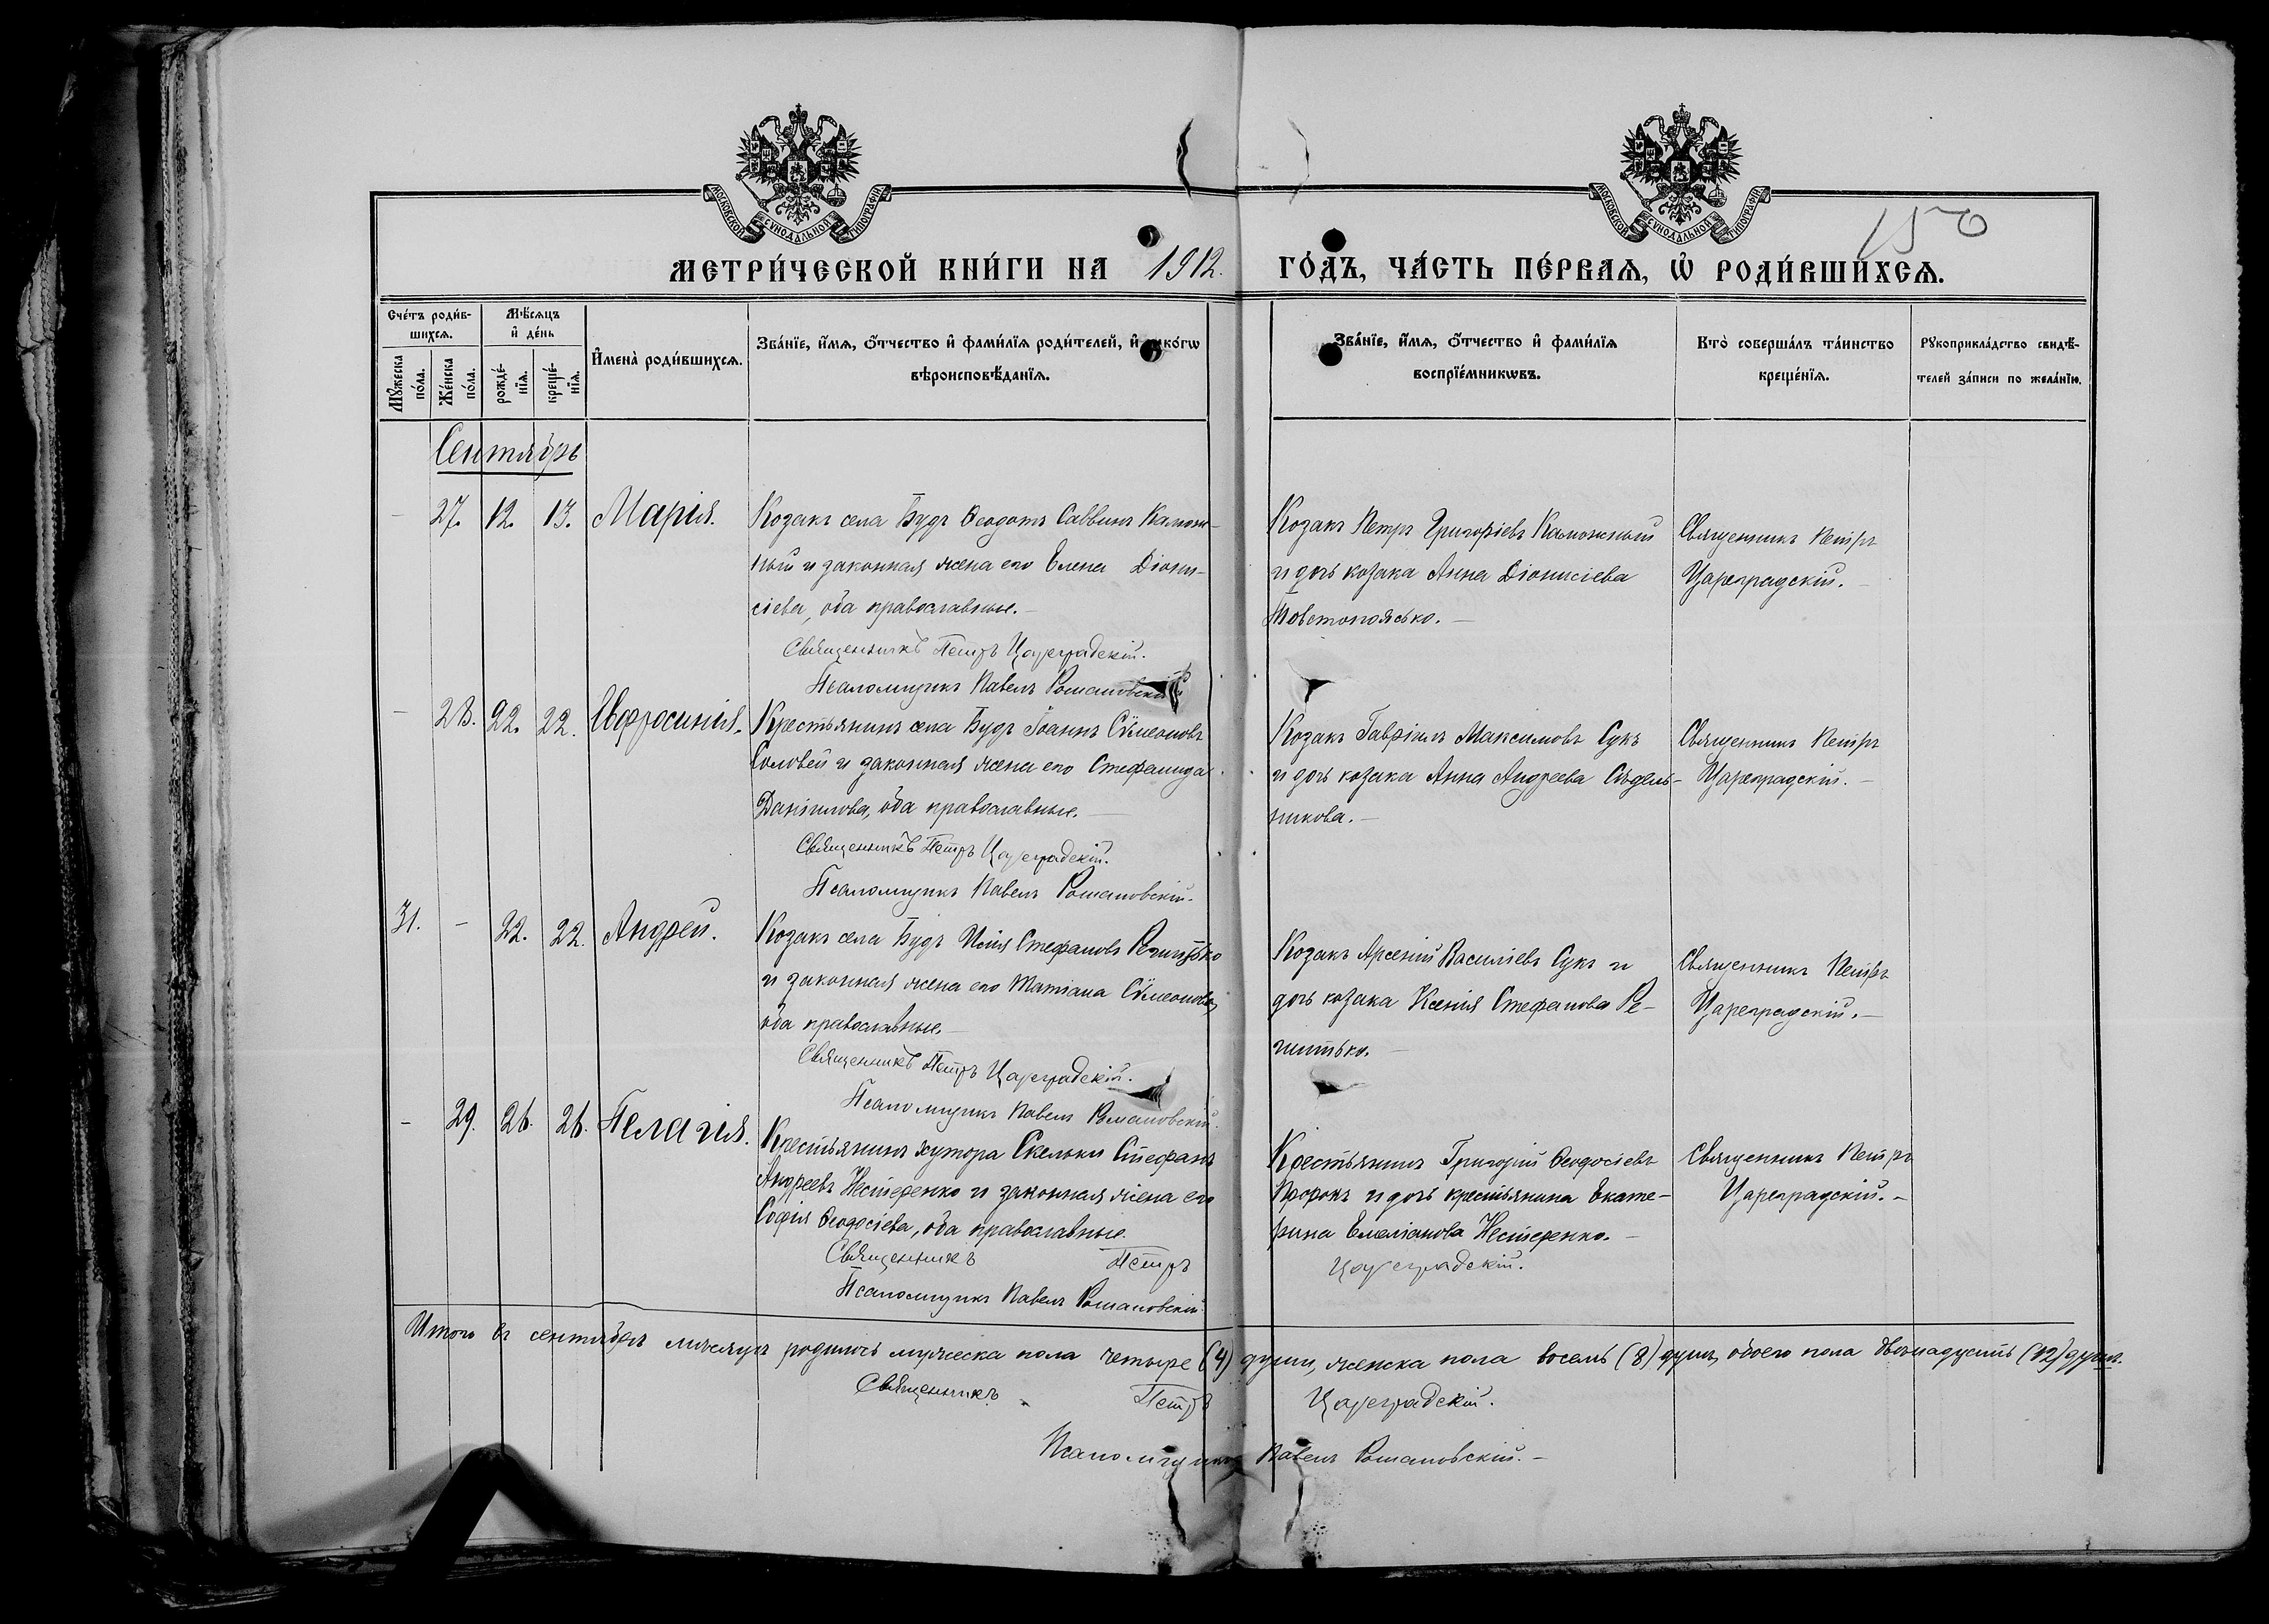 МОСКОВСКОЙ СѴНОДАЛЬНОЙ ТИПОГРАФІИ
МОСКОВСКОЙ СѴНОДАЛЬНОЙ ТИПОГРАФІИ
150
МЕТРИ́ЧЕСКОЙ КНИ́ГИ НА 1912. ГО́ДЪ, ЧА́СТЬ ПЕ́РВАЯ, Ѡ РОДИ́ВШИХСЯ.
Сче́тъ роди́в-
шихся.
Мѣ́сяцъ
и де́нь
Мꙋ́жеска по́ла.
Же́нска по́ла.
рожде́-
нїя.
креще́-
нїя.
Имена̀ роди́вшихся.
Зва́нїе, и́мя, о́тчество и фами́лїя роди́телей, и како́гѡ
вѣроисповѣ́данїя.
Зва́нїе, и́мя, о́тчество и фами́лїя
воспрїе́мникѡвъ.
Кто̀ соверша́лъ та́инство
креще́нїя.
Рꙋкоприкла́дство свидѣ́-
телей за́писи по жела́нїю.
Сентябрь
- 27. 12. 13. Марія.
Козакъ села Будъ Ѳеодотъ Саввинъ Калюж-
ный и законная жена его Елена Діони-
сіева, оба православные.-
Священникъ Петръ Цареградскій.
Псаломщикъ Павелъ Романовскій
Козакъ Петръ Григоріевъ Калюжный
и дочь козака Анна Діонисіева
Товстопоясько.-
Священникъ Петръ
Цареградскій.-
- 28. 22. 22. Евфросинія.
Крестьянинъ села Будъ Іоаннъ Сѵмеоновъ
Соловей и законная жена его Стефанида
Даніилова, оба православные.-
Священникъ Петръ Цареградскій.
Псаломщикъ Павелъ Романовскій.
Козакъ Гавріилъ Максимовъ Сукъ
и дочь козака Анна Андреева Сѣдель-
никова.-
Священникъ Петръ
Цареградскій.-
31. - 22. 22. Андрей.
Козакъ села Будъ Илія Стефановъ Речитько
и законная жена его Татіана Сѵмеонова,
оба православные.-
Священникъ Петръ Цареградскій.
Псаломщикъ Павелъ Романовскій.
Козакъ Арсеній Василіевъ Сукъ и
дочь козака Ксенія Стефанова Ре-
читько.-
Священникъ Петръ
Цареградскій.-
- 29. 26. 26. Пелагія.
Крестьянинъ хутора Скельки Стефанъ
Андреевъ Нестеренко и законная жена его
Софія Ѳеодосіева, оба православные.
Священникъ Петръ Цареградскій.
Псаломщикъ Павелъ Романовскій
Крестьянинъ Григорій Ѳеодосіевъ
Пророкъ и дочь крестьянина Екате-
рина Емеліанова Нестеренко.-
Священникъ Петръ
Цареградскій.-
Итого въ сентябрѣ мѣсяцѣ родилось мужеска пола четыре (4) души, женска пола восемь (8) душъ, обоего пола двѣнадцать (12) душъ.
Священникъ Петръ Цареградскій.
Псаломщикъ Павелъ Романовскій.-